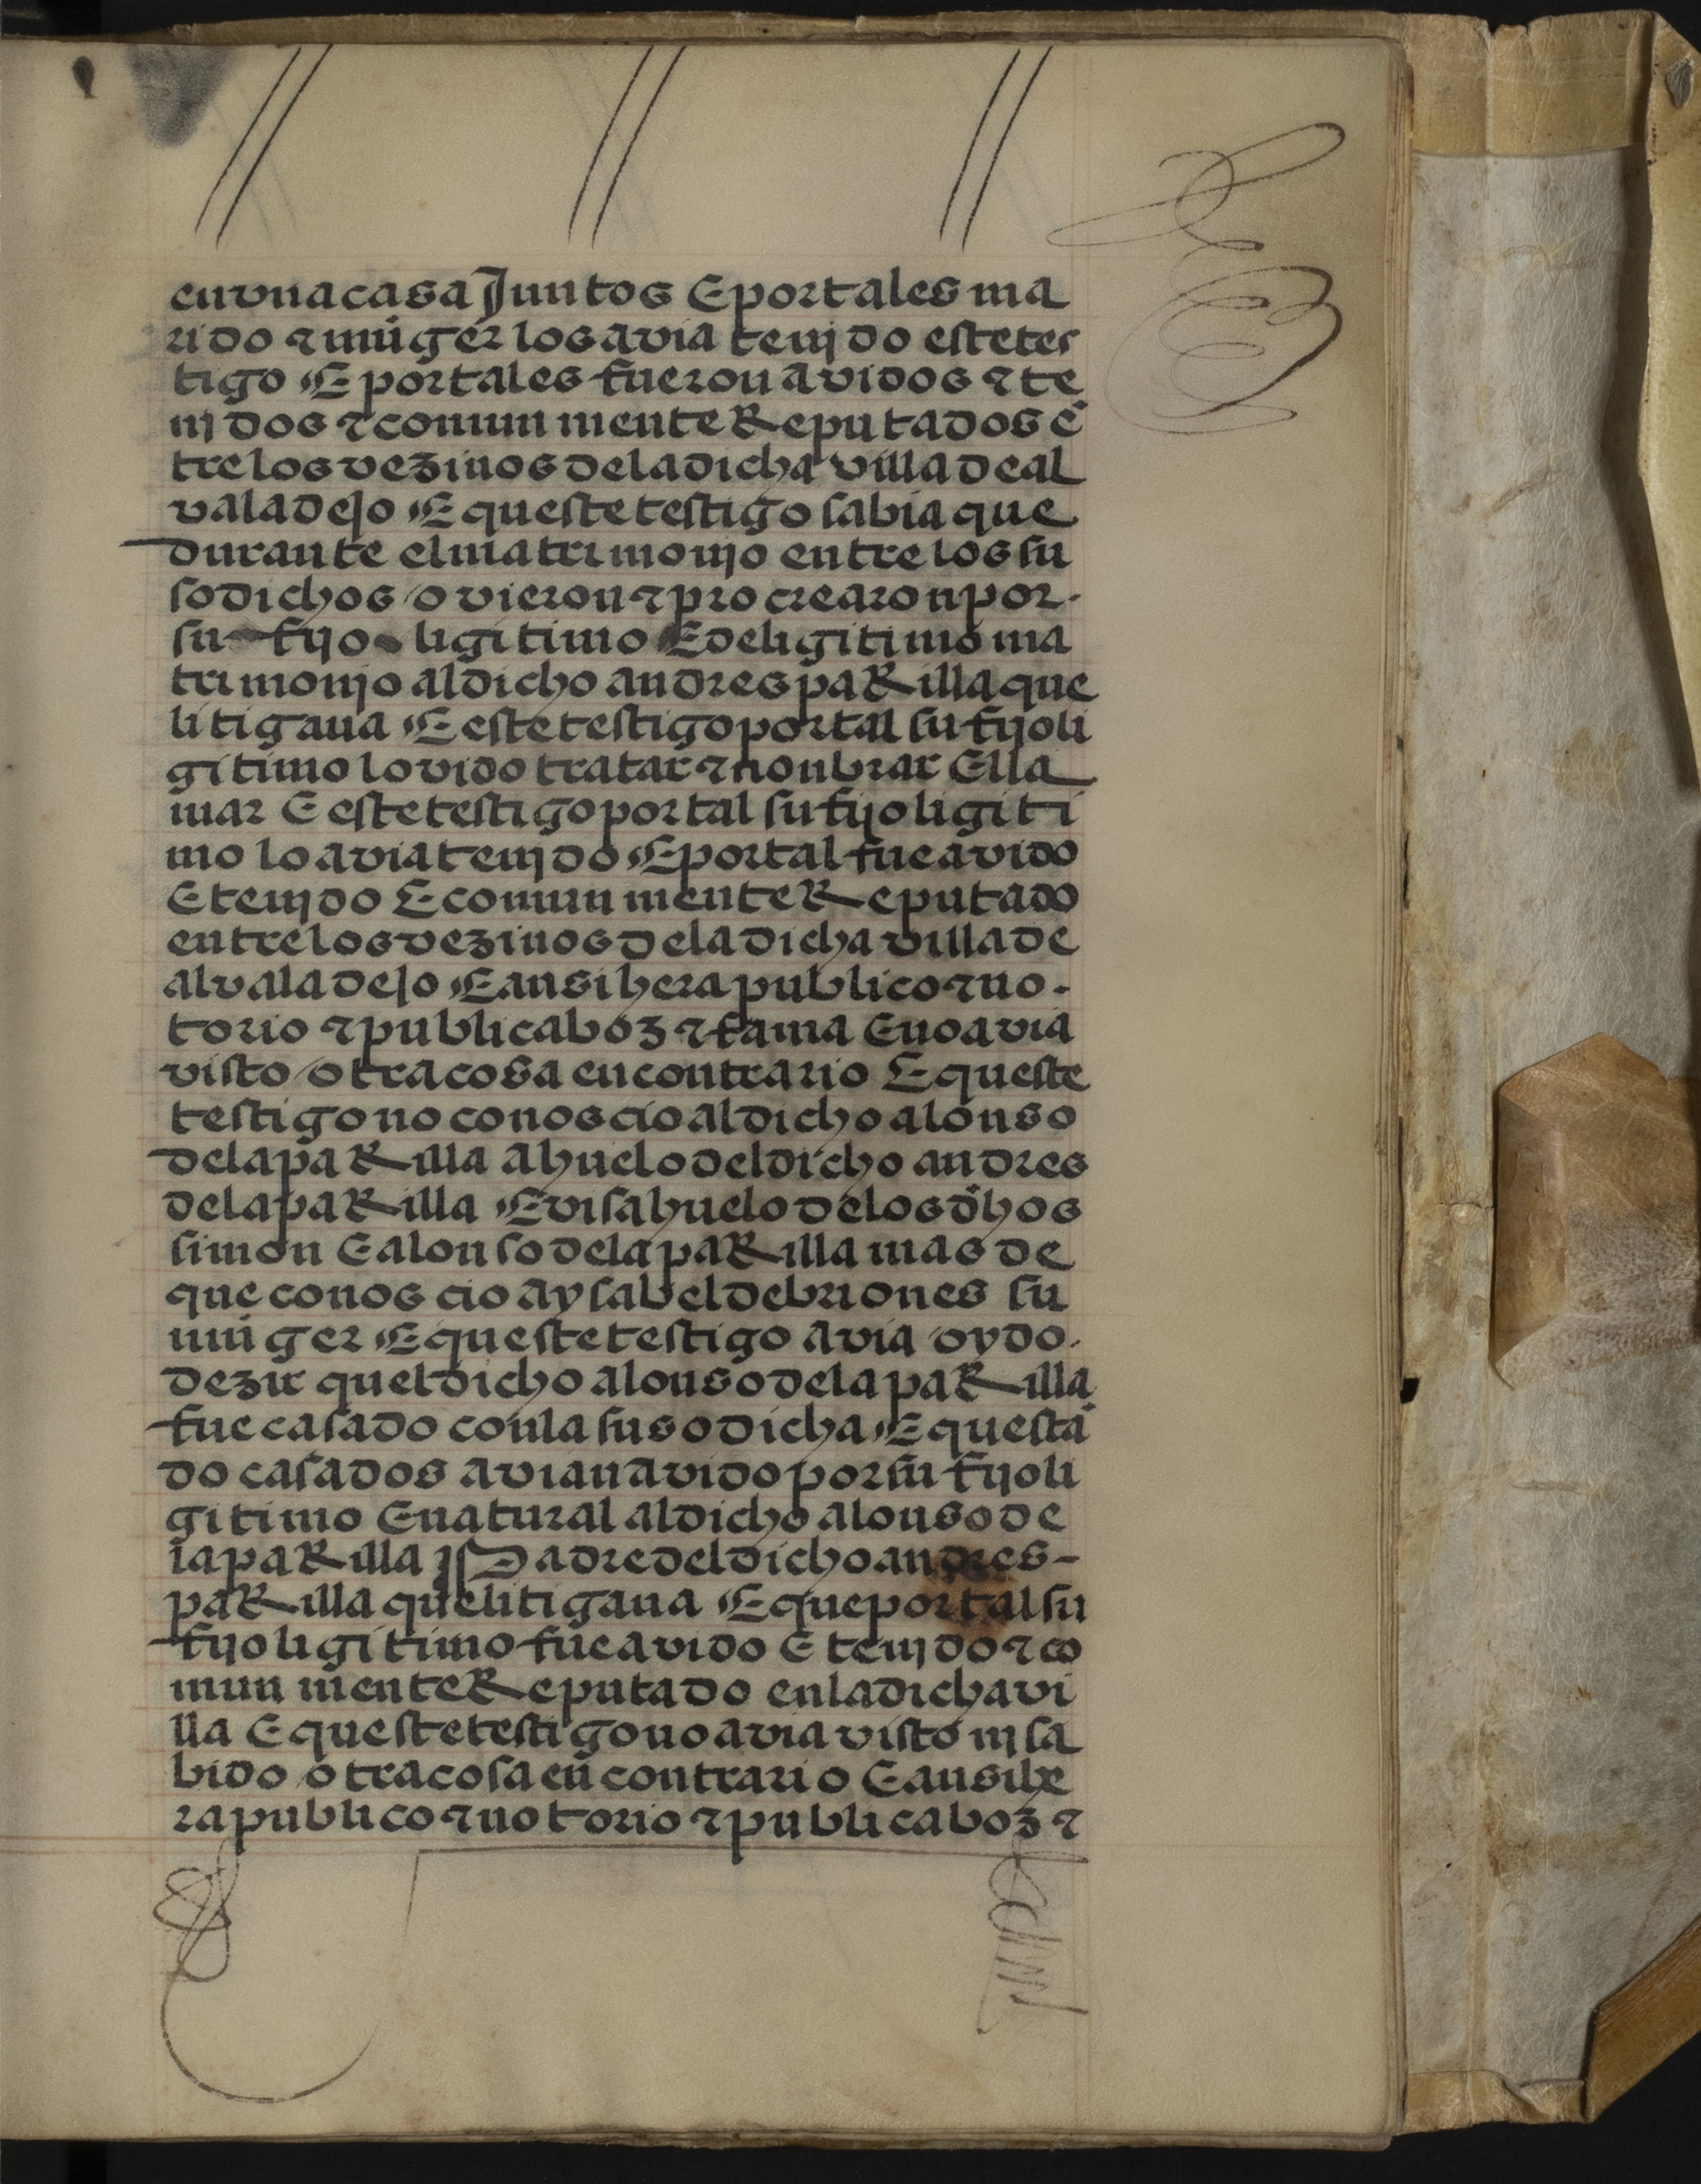 en vna casa Juntos E por tales ma
rido ⁊ muger los avia tenjdo este tes
tigo E por tales fueron avidos ⁊ te
njdos ⁊ comun mente Reputados ẽ
tre los vezinos dela dicha villa de al
valadejo E queste testigo sabia que
durante el matrimonjo entre los su
sodichos ovieron ⁊ procrearon por
su fijo ligitimo E de ligitimo ma
trimonjo al dicho andres paRilla que
litigaua E este testigo por tal su fijo li
gitimo lo vido tratar ⁊ nonbrar E lla
mar E este testigo por tal su fijo ligiti
mo lo avia tenjdo E por tal fue avido
E tenjdo E comun mente Reputado
entre los vezinos dela dicha villa de
alvaladejo E ansi hera publico ⁊ no
torio ⁊ publica boz ⁊ fama E no avia
visto otra cosa en contrario E queste
testigo no conoscio al dicho alonso
dela paRilla ahuelo del dicho andres
dela paRilla E visahuelo delos dħos
simon E alonso dela paRilla mas de
que conoscio a ysabel de briones su
muger E queste testigo avia oydo
dezir quel dicho alonso dela paRilla
fue casado con la susodicha E questã
do casados avian avido por su fijo li
gitimo E natural al dicho alonso de
la paRilla padre del dicho andres
paRilla que litigaua E que por tal su
fijo ligitimo fue avido E tenjdo ⁊ co
mun mente Reputado en la dicha vi
lla E queste testigo no avia visto nj sa
bido otra cosa en contrario E ansi he
ra publico ⁊ notorio ⁊ publica boz ⁊